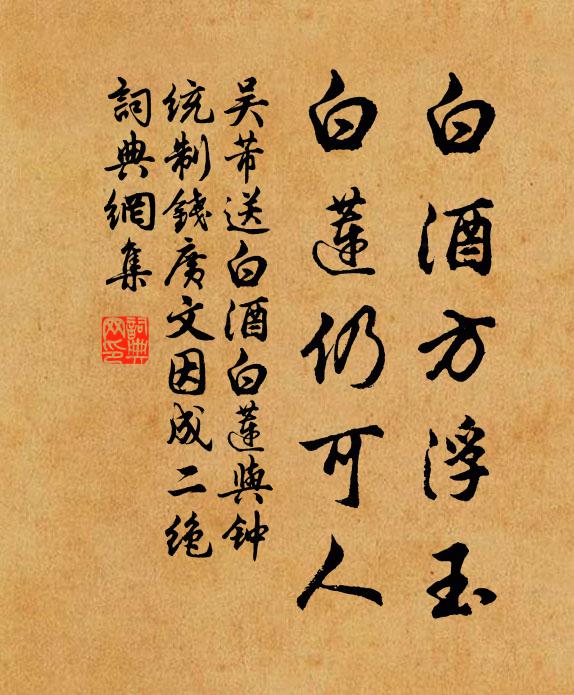 白酒方浮玉
白蓮仍可人
吴芾送白酒白蓮與钟
统制錢廣文因成二绝
詞典網集
詞典网印